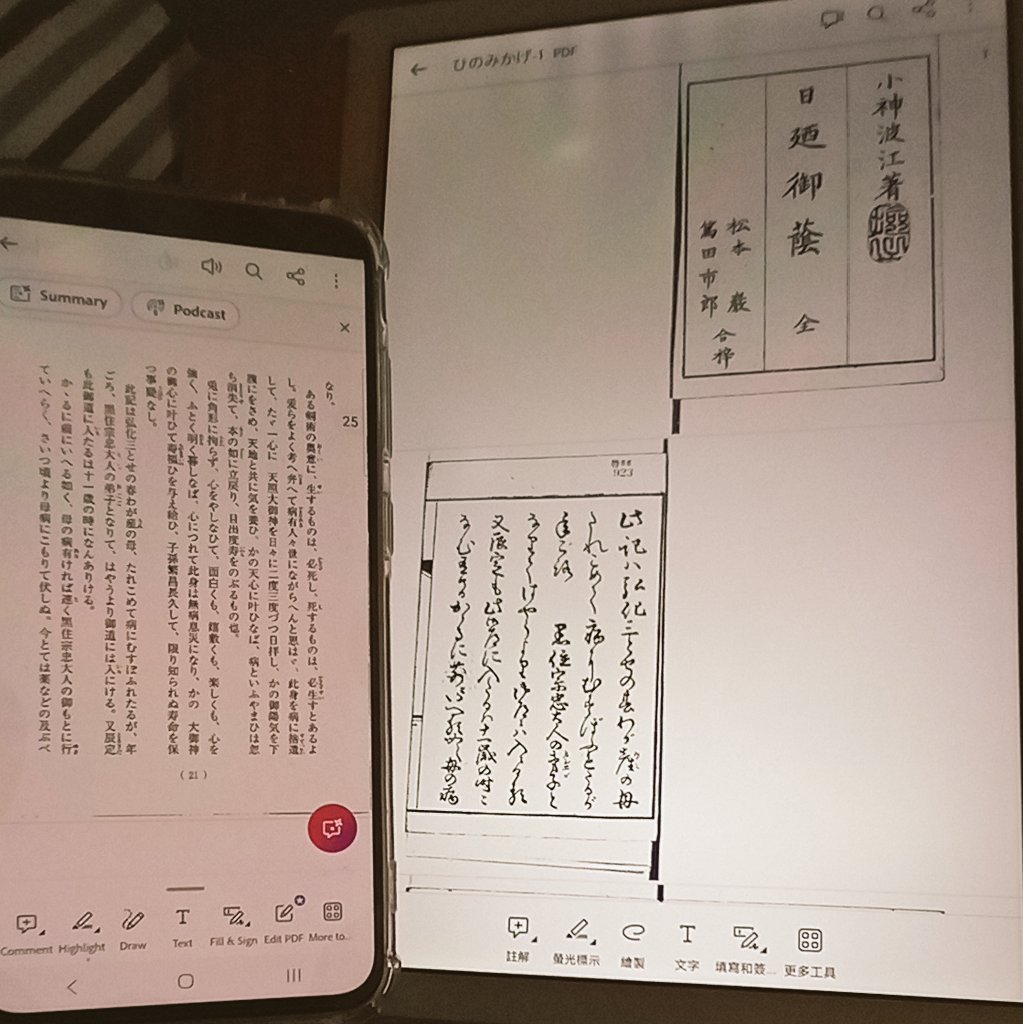 Summary
Podcast
25
なり。
ある剣術の奥意に、生するものは、必死し、死するものは、必生すとあるよ
し。爰らをよく考へ弁へて病有人々世にながらへんと思はゞ、此身を病に捨遣
して、たゞ一心に　天照大御神を日々に二度三度づつ日拝し、かの御陽気を下
腹にをさめ、天地と共に気を養ひ、かの天心に叶ひなば、病といふやまひは忽
ち消失て、本の如に立戻り、日出度寿をのぶるもの也。
兎に角形に拘らず、心をやしなひて、面白くも、嬉敷くも、楽しくも、心を
強く、ふとく明く暮しなば、心につれて此身は無病息災になり、かの　大御神
の御心に叶ひて寿福ひを与え給ひ、子孫繁昌長久して、限り知られぬ寿命を保
つ事疑なし。
此記は弘化三とせの春わが産の母、たれこめて病にむすぼふれたるが、年
ごろ、黒住宗忠大人の弟子となりて、はやうより御道には入にける。又辰定
も此御道に入たるは十一歳の時になんありける。
かゝるに前にいへる如く、母の病有ければ速く黒住宗忠大人の御もとに行
ていへらく、さいつ頃より母病にこもりて伏しぬ。今とては薬などの及ぶべ
(21)
Comment
Highlight
Draw
Text
Fill & Sign
Edit PDF
More to...
ひのみかげ-1 PDF
1
小神波江著
日廼御蔭　全
松本巌
篤田市郎
合梓
923
此記ハ弘化三とせの春わが産の母
たれこめて病にむすぼふれたるが
年ごろ　黒住宗忠大人の弟子と
なりてはやうより御道には入にける
又辰定も此御道に入たるハ十一歳の時に
なむありけるかゝるに前にいへる如く母の病
註解
螢光標示
繪製
文字
填寫和簽...
更多工具